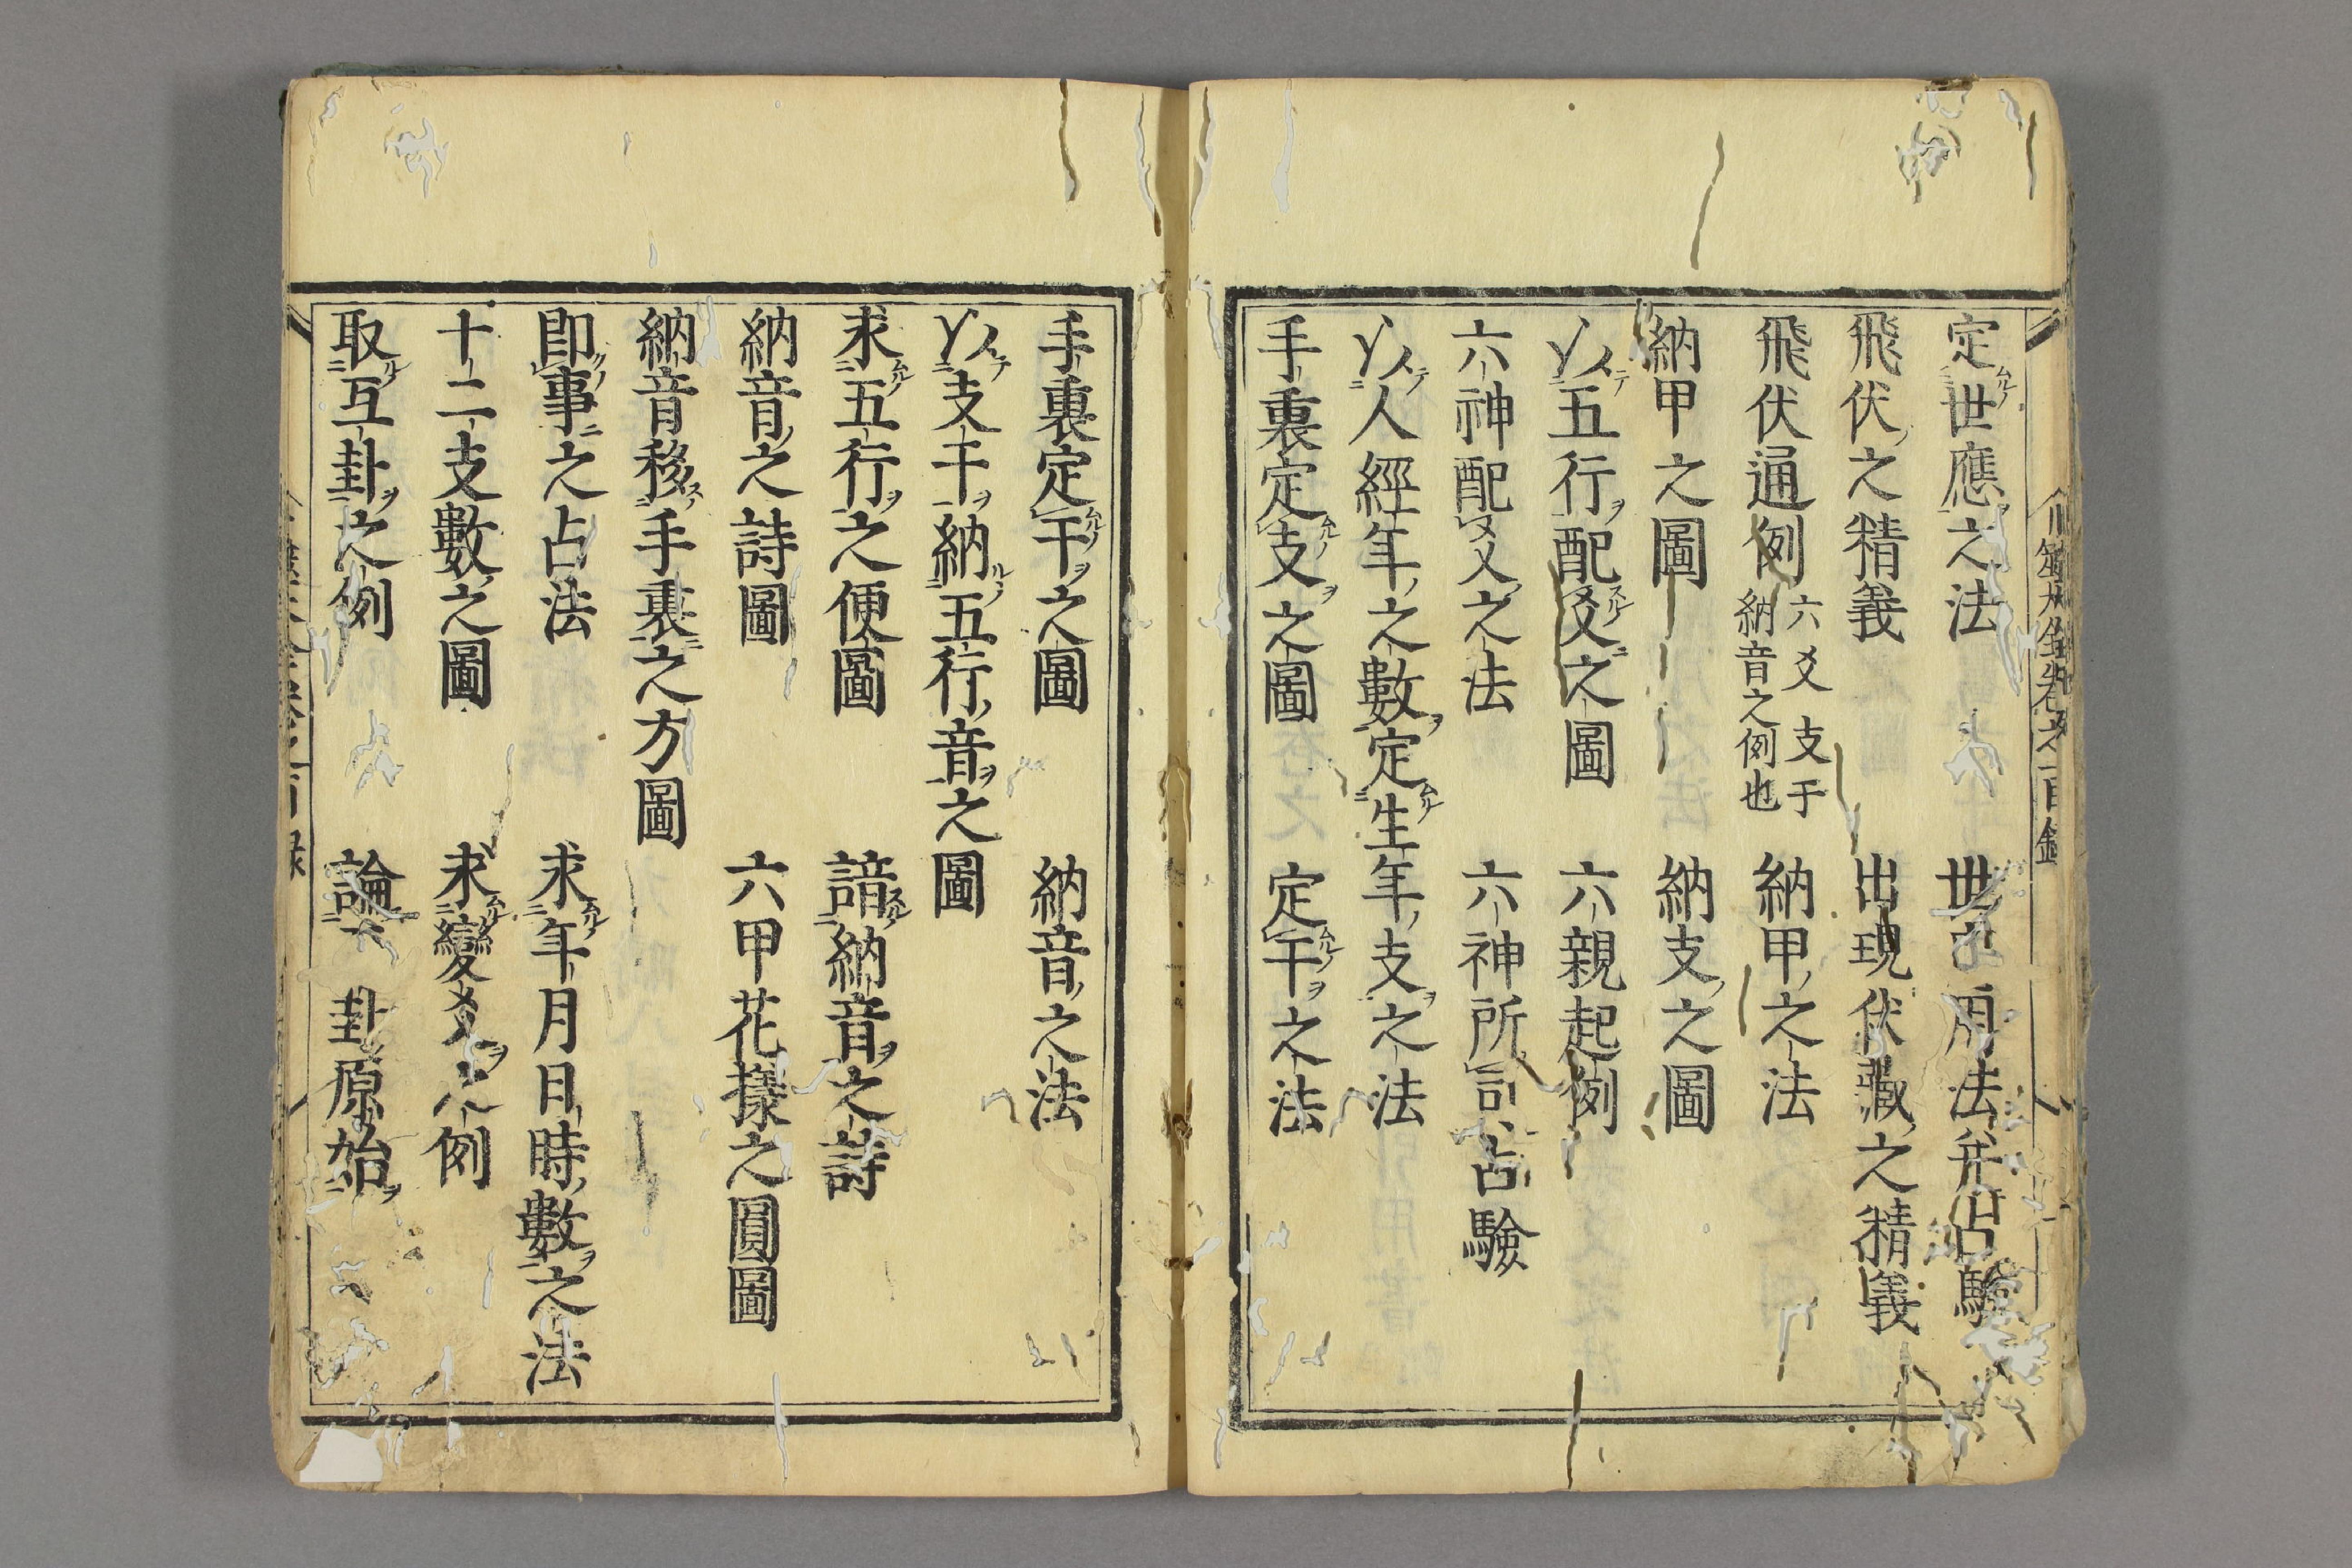 定世應之法　世〇用法并占驗
飛伏之精義　出現伏藏之精義
飛伏通例　六爻支干
納音之例也　納甲之法
納甲之圖　納支之圖
以五行配爻之圖　六親起例
六神配爻之法　六神所司占驗
以人經年之數定生年支之法
手裏定支之圖　定干之法
手裏定干之圖　納音之法
以支干納五行音之圖
求五行之便圖　諳納音之詩
納音之詩圖　六甲花樣之圓圖
納音移手裏之方圖
即事之占法　求年月日時數之法
十二支數之圖　求變爻之例
取互卦之例　論卦原始